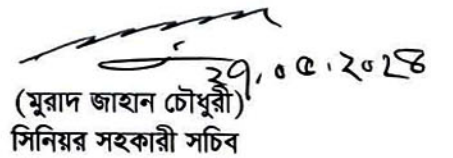 ২৭.০৫.২০২৪
(মুরাদ জাহান চৌধুরী)
সিনিয়র সহকারী সচিব